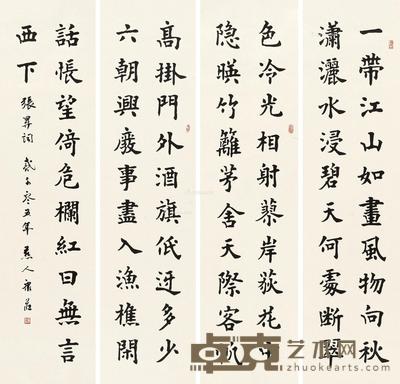 一帶江山如畫風物向秋
瀟灑水浸碧天何處斷翠
色冷光相射蓼岸荻花中
隐暎竹籬茅舍天際客帆
高掛門外酒旗低迓多少
六朝興廢事盡入漁樵閑
話悵望倚危欄紅日無言
西下 張昇詞 零五年 人
卓克艺术网